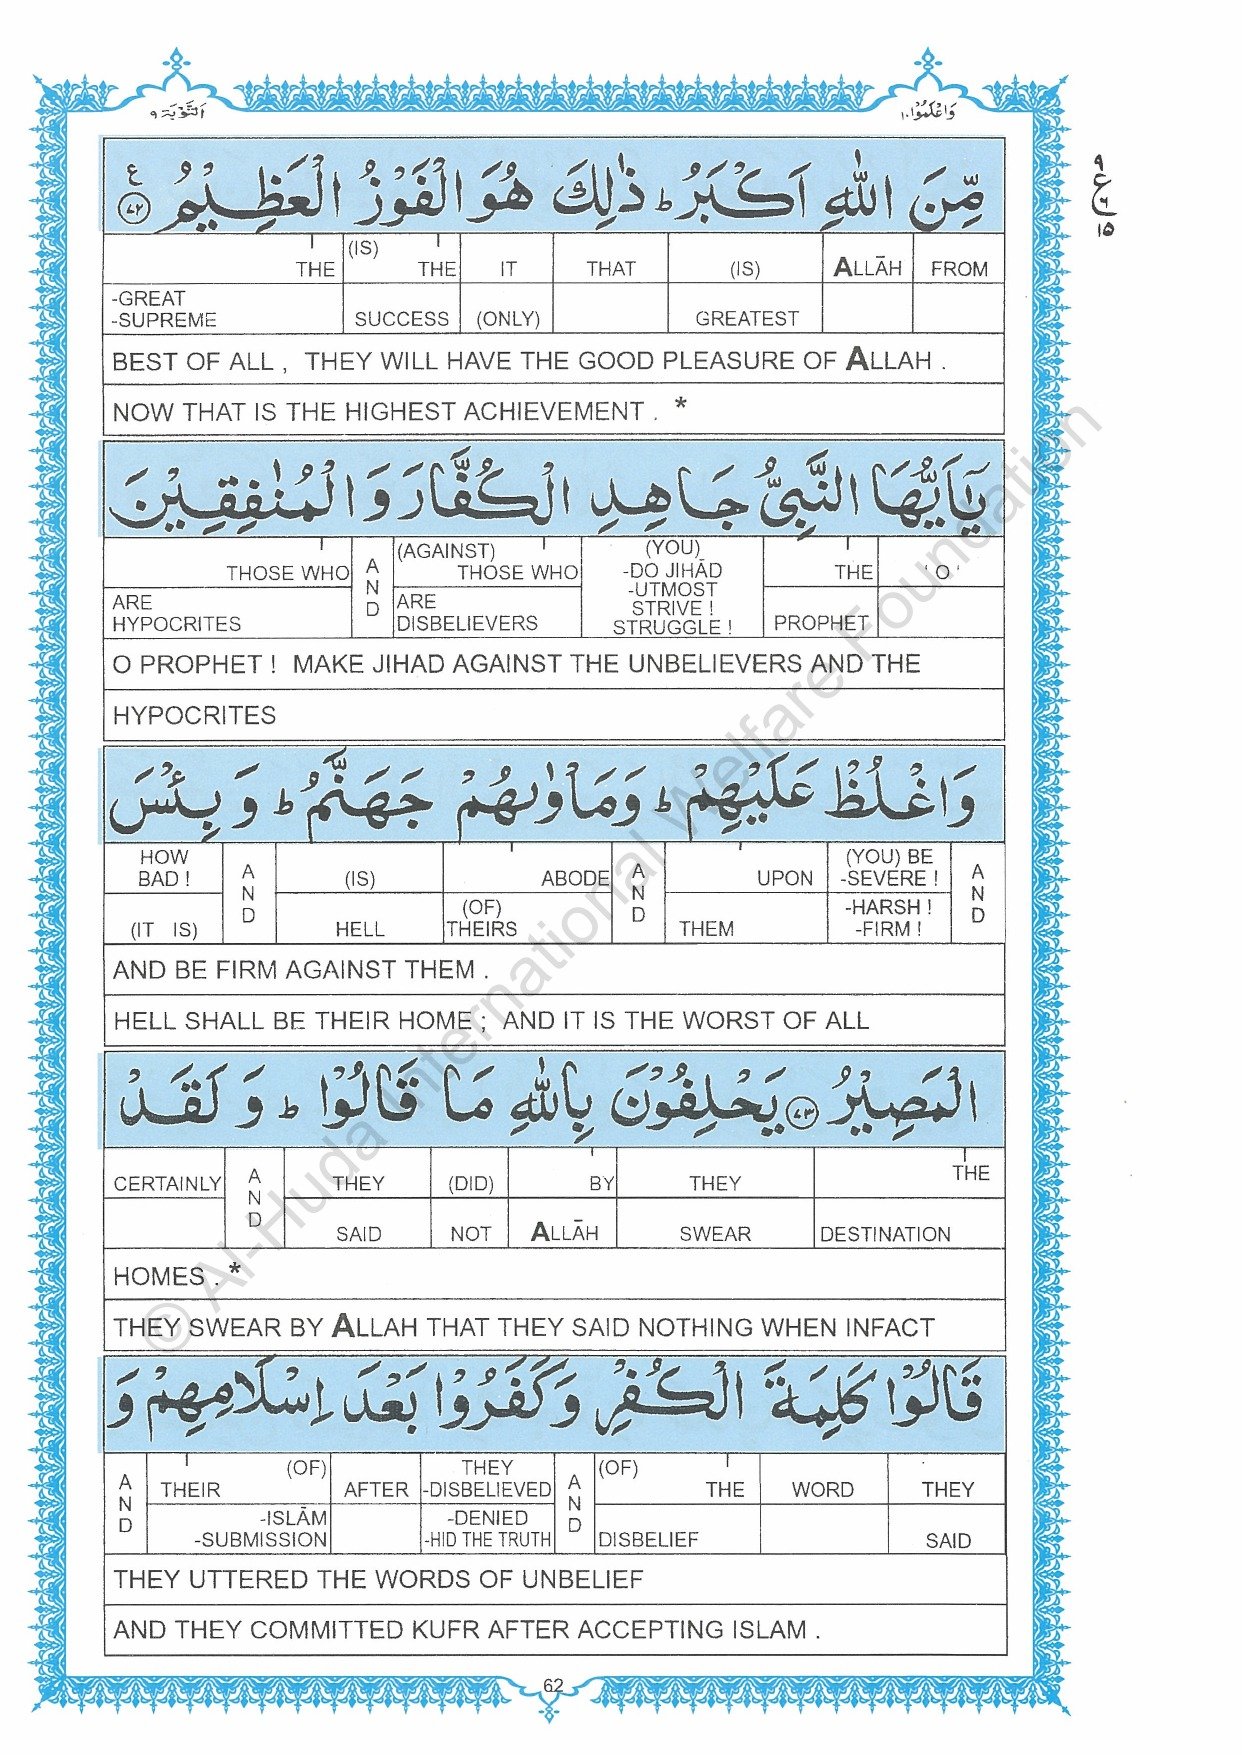 اَلتَّوْبَة ٩
وَاعْلَمُوْۤا ١٠
مِّنَ اللّٰهِ اَكْبَرُ ؕ ذٰلِكَ هُوَ الْفَوْزُ الْعَظِيْمُ ع ٧٢
٩ ع ٦ ١٥
THE (IS) THE IT THAT (IS) ALLĀH FROM
-GREAT
-SUPREME SUCCESS (ONLY) GREATEST
BEST OF ALL , THEY WILL HAVE THE GOOD PLEASURE OF ALLAH .
NOW THAT IS THE HIGHEST ACHIEVEMENT . *
يٰۤاَيُّهَا النَّبِيُّ جَاهِدِ الْكُفَّارَ وَ الْمُنٰفِقِيْنَ
THOSE WHO AND (AGAINST) THOSE WHO (YOU) -DO JIHĀD THE ' O '
ARE HYPOCRITES ARE DISBELIEVERS -UTMOST STRIVE ! STRUGGLE ! PROPHET
O PROPHET ! MAKE JIHAD AGAINST THE UNBELIEVERS AND THE
HYPOCRITES
وَ اغْلُظْ عَلَيْهِمْ ؕ وَمَاْوٰىهُمْ جَهَنَّمُ ؕ وَ بِئْسَ
HOW BAD ! AND (IS) ABODE AND UPON (YOU) BE -SEVERE ! AND
(IT IS) HELL (OF) THEIRS THEM -HARSH ! -FIRM !
AND BE FIRM AGAINST THEM .
HELL SHALL BE THEIR HOME ; AND IT IS THE WORST OF ALL
الْمَصِيْرُ ٧٣ يَحْلِفُوْنَ بِاللّٰهِ مَا قَالُوْا ؕ وَ لَقَدْ
CERTAINLY AND THEY (DID) BY THEY THE
SAID NOT ALLĀH SWEAR DESTINATION
HOMES . *
THEY SWEAR BY ALLAH THAT THEY SAID NOTHING WHEN INFACT
قَالُوْا كَلِمَةَ الْكُفْرِ وَ كَفَرُوْا بَعْدَ اِسْلَامِهِمْ وَ
AND THEIR (OF) AFTER THEY -DISBELIEVED AND (OF) THE WORD THEY
-ISLĀM -SUBMISSION -DENIED -HID THE TRUTH DISBELIEF SAID
THEY UTTERED THE WORDS OF UNBELIEF
AND THEY COMMITTED KUFR AFTER ACCEPTING ISLAM .
62
© Al-Huda International Welfare Foundation